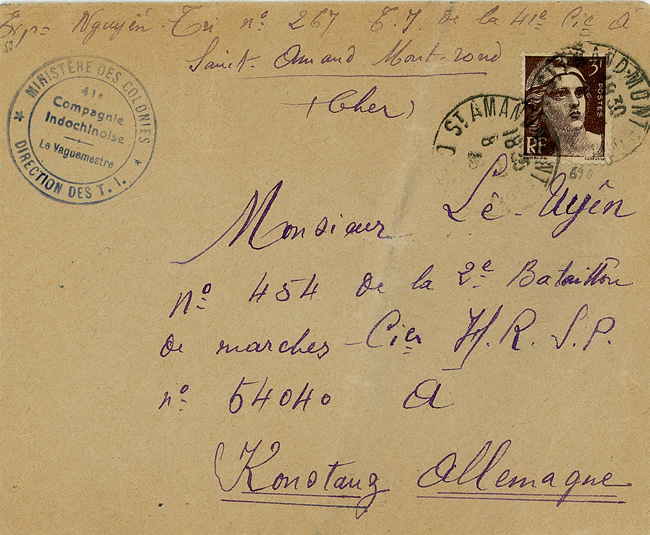 Exp= Nguyên-Tri nº 267 T.I. de la 41e Cie A
Saint Amand Mont-rond
(Cher)
MINISTÈRE DES COLONIES
41e
Compagnie
Indochinoise
Le Vaguemestre
DIRECTION DES T. I.
3F
POSTES
RF
ST AMAND MONT
18 30
690
Monsieur Lê-Uyên
nº 454 de la 2e Bataillon
de marches - Cie H.R.S.P.
nº 54040 A
Konstanz Allemagne